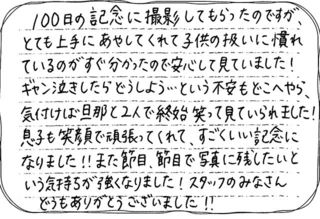 100日の記念に撮影してもらったのですが、
とても上手にあやしてくれて子供の扱いに慣れ
ているのがすぐ分かったので安心して見ていました!
ギャン泣きしたらどうしよう…という不安もどこへやら、
気付けば旦那と2人で終始笑って見ていられました!
息子も笑顔で頑張ってくれて、すごくいい記念に
なりました!!また節目、節目で写真に残したいと
いう気持ちが強くなりました!スタッフのみなさん
どうもありがとうございました!!